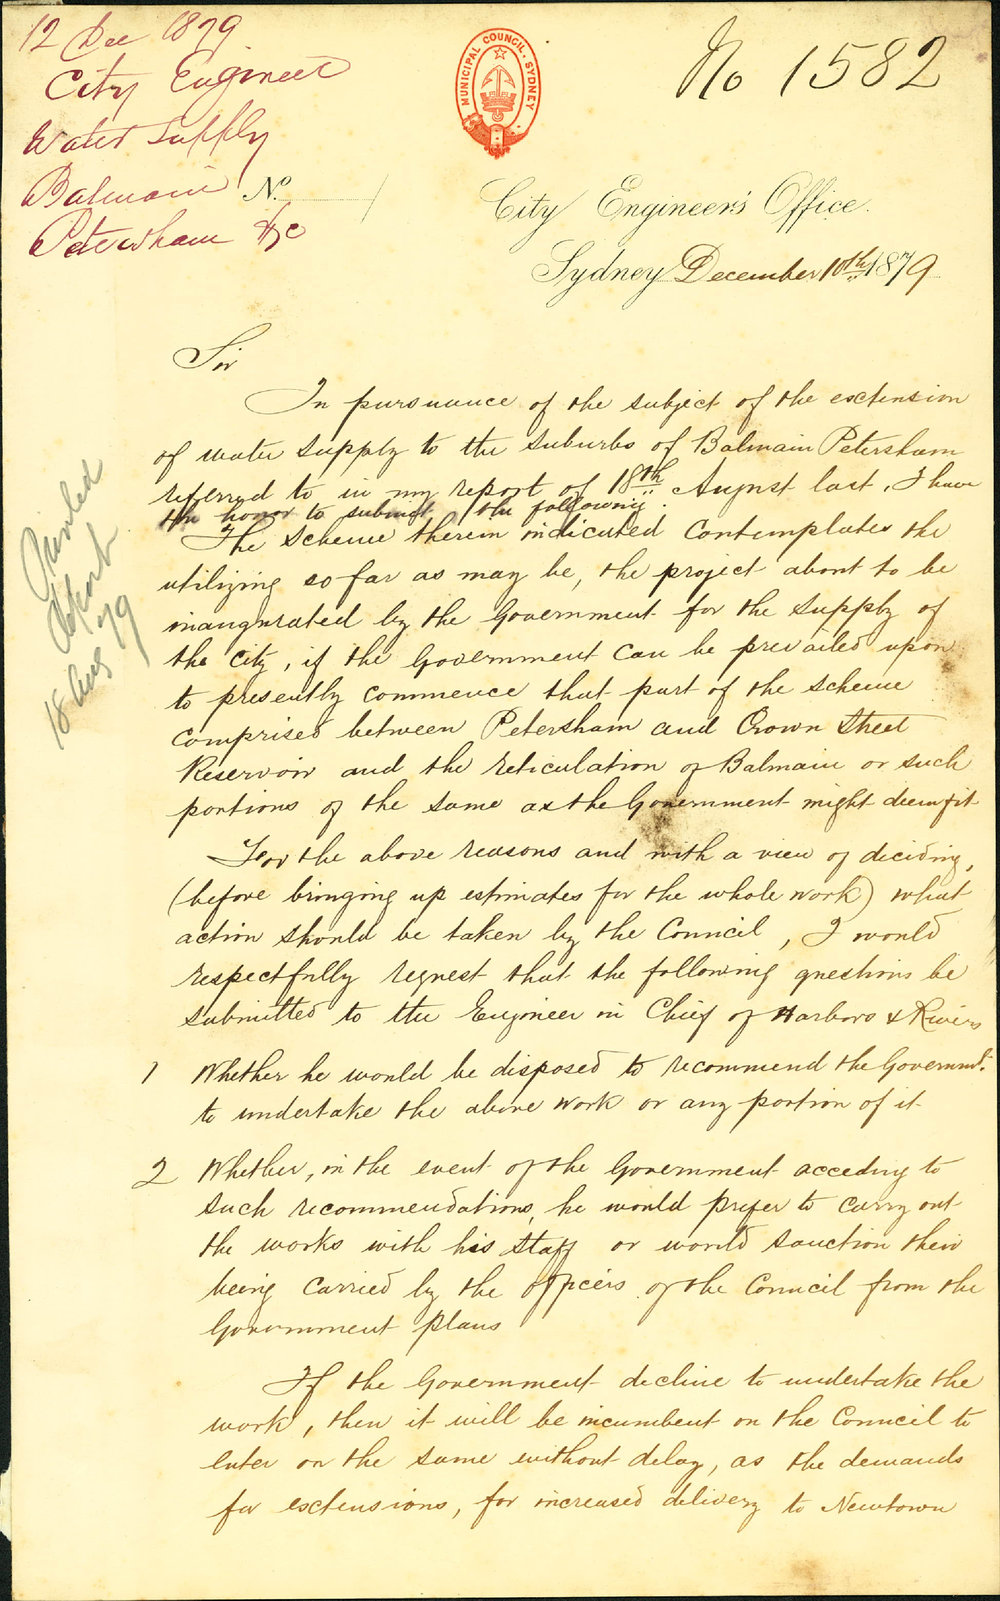 12 Dec 1879
City Engineer
Water Supply
Balmain
Petersham &c
MUNICIPAL COUNCIL. SYDNEY
No 1582
No.
City Engineer's Office.
Sydney December 10th 1879
Sir
In pursuance of the subject of the extension
of water supply to the suburbs of Balmain Petersham
referred to in my report of 18th August last, I have
the honor to submit the following.
The scheme therein indicated contemplates the
utilizing so far as may be, the project about to be
inaugurated by the Government for the supply of
the city, if the Government can be prevailed upon
to presently commence that part of the scheme
comprised between Petersham and Crown Street
Reservoir and the reticulation of Balmain or such
portions of the same as the Government might deem fit
For the above reasons and with a view of deciding,
(before bringing up estimates for the whole work) what
action should be taken by the Council, I would
respectfully request that the following questions be
submitted to the Engineer in Chief of Harbors & Rivers
1 Whether he would be disposed to recommend the Governmt.
to undertake the above work or any portion of it
2 Whether, in the event of the Government acceding to
such recommendations, he would prefer to carry out
the works with his staff or would sanction their
being carried by the officers of the Council from the
Government plans
If the Government decline to undertake the
work, then it will be incumbent on the Council to
enter on the same without delay, as the demands
for extensions, for increased delivery to Newtown
Printed
Report
18 Aug 79